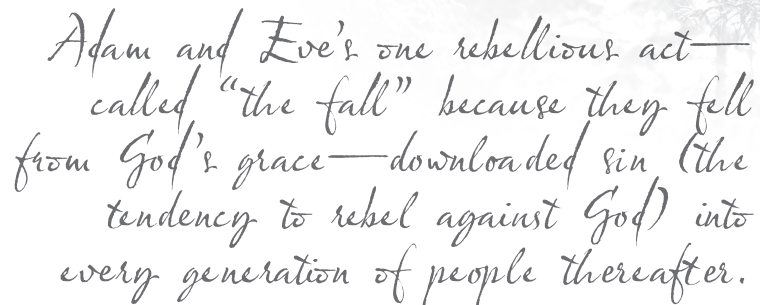 Adam and Eve's one rebellious act—
called “the fall” because they fell
from God's grace—downloaded sin (the
tendency to rebel against God) into
every generation of people thereafter.